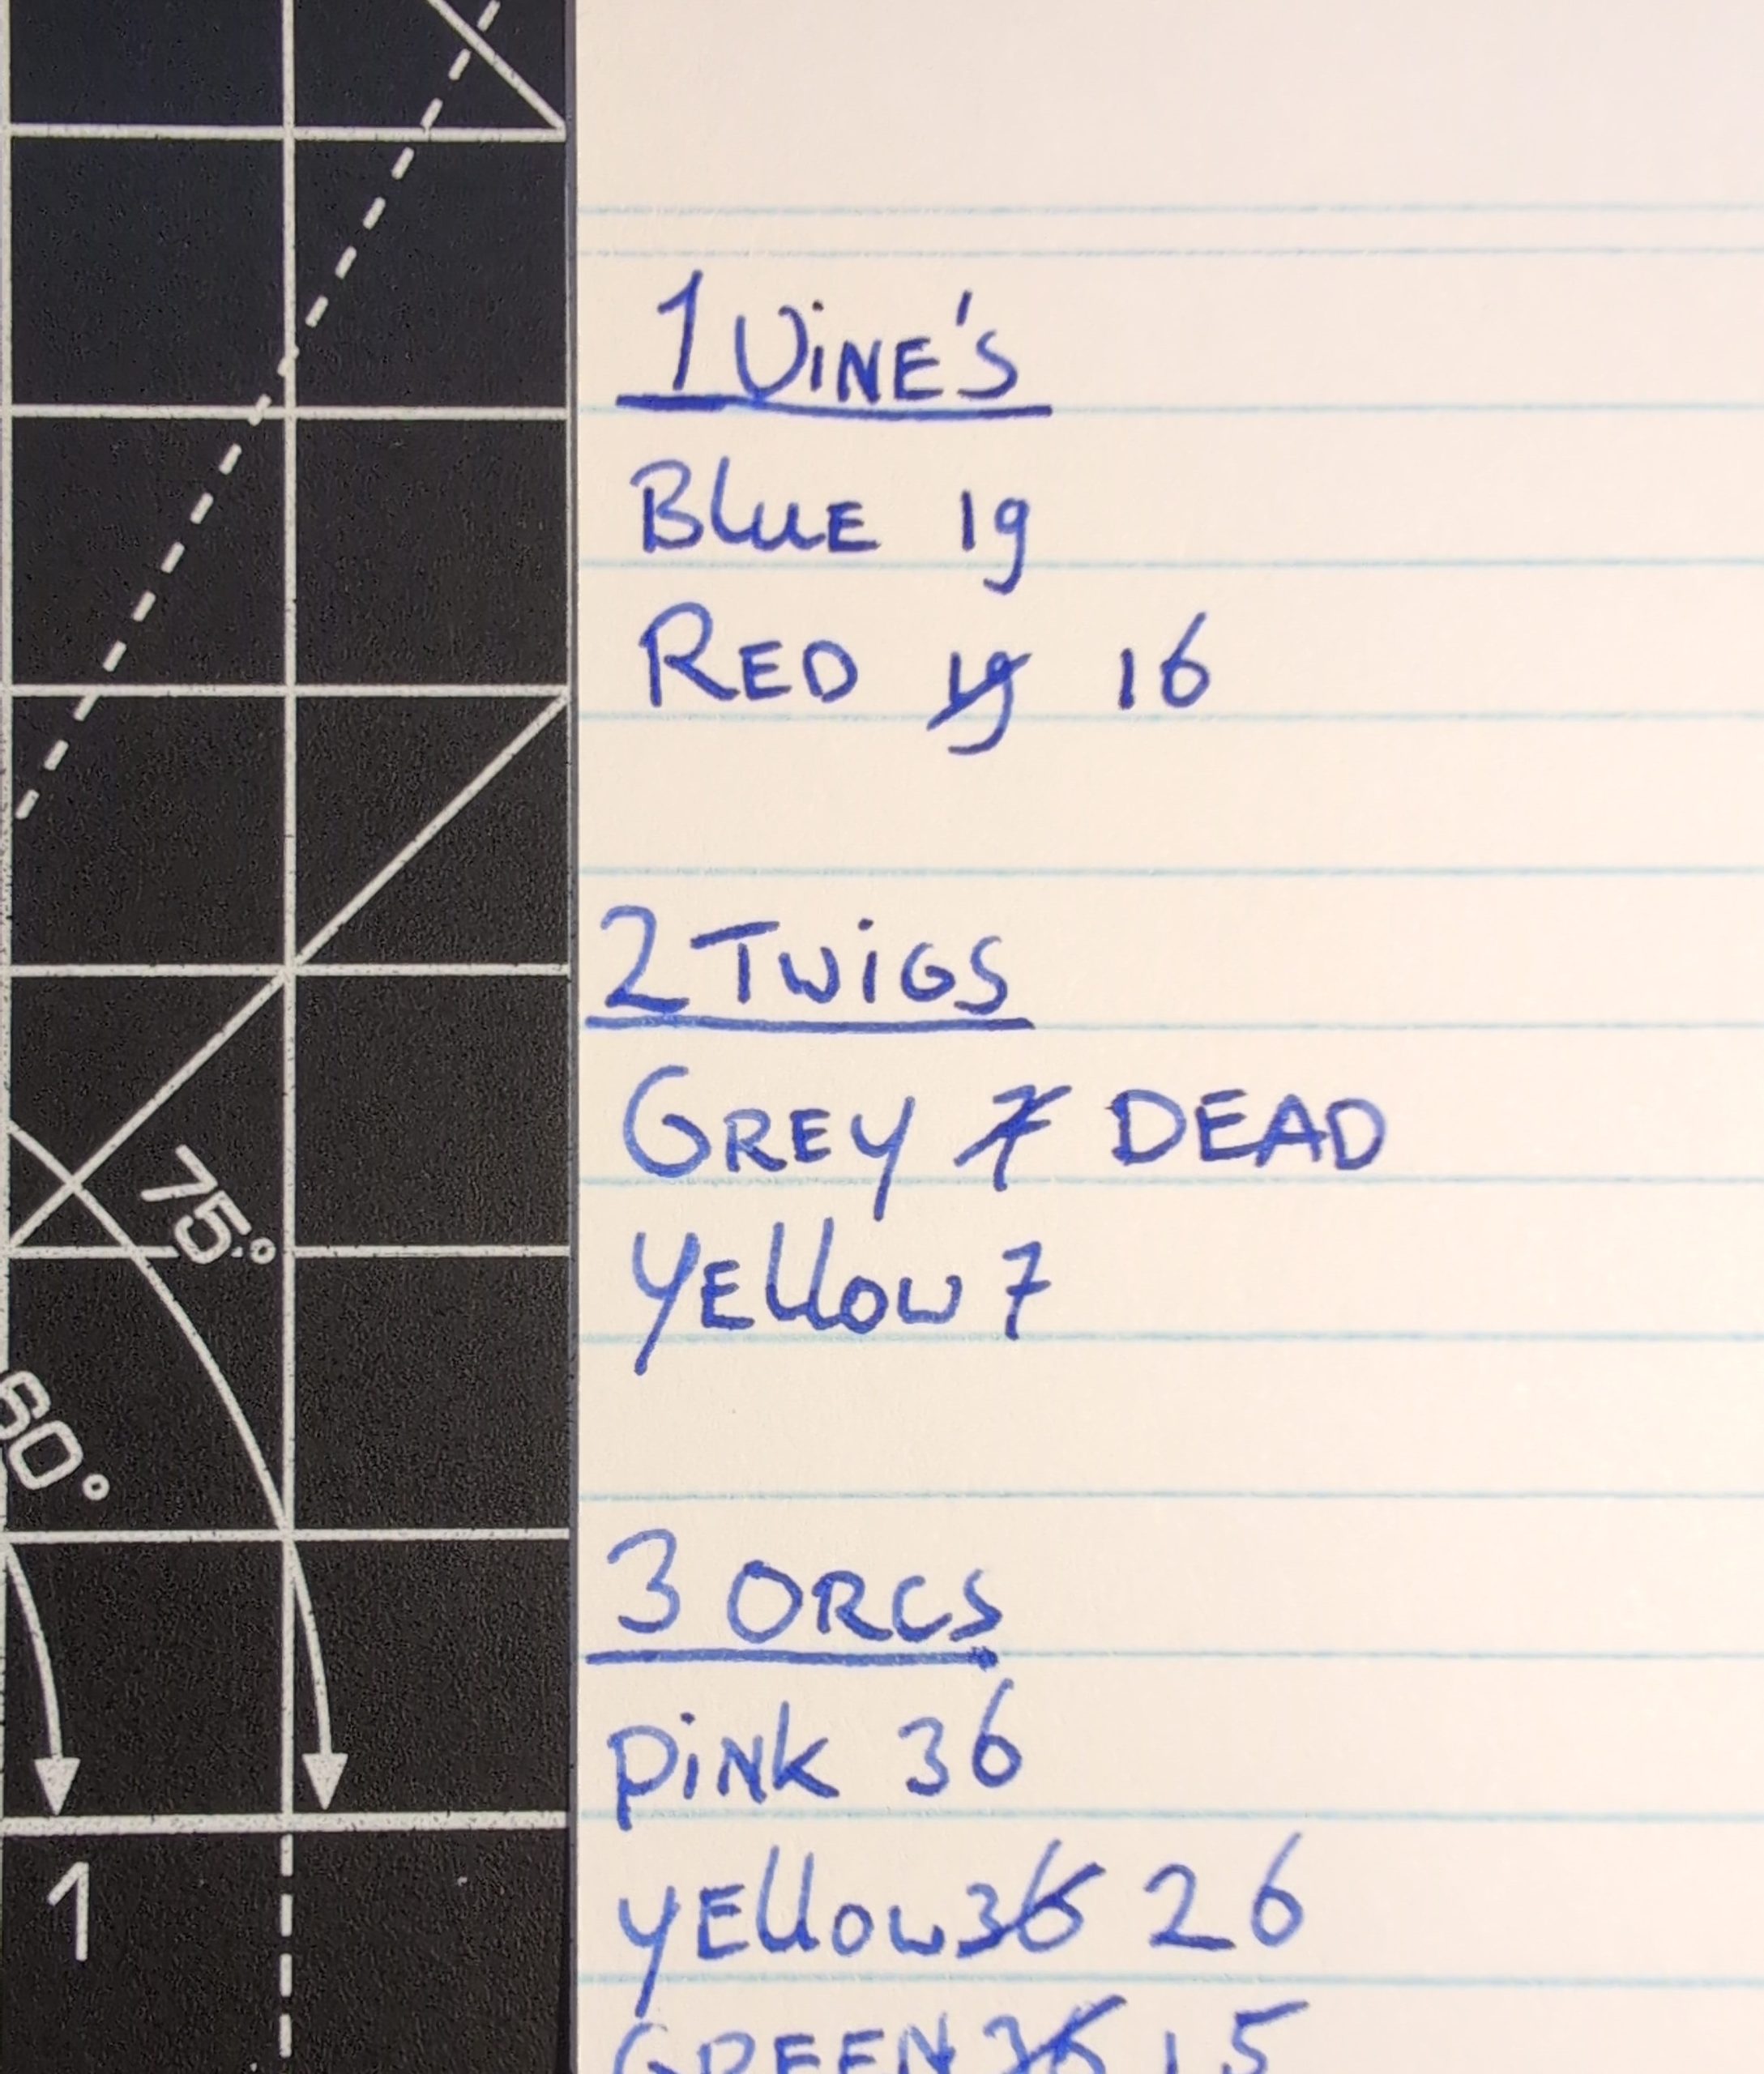 1 ViNE's
BluE 19
RED 19 16
2 TwiGS
GREY 7 DEAD
YEllow 7
75°
60°
3 ORCS
PiNK 36
YEllow 36 26
1
GREEN 36 15